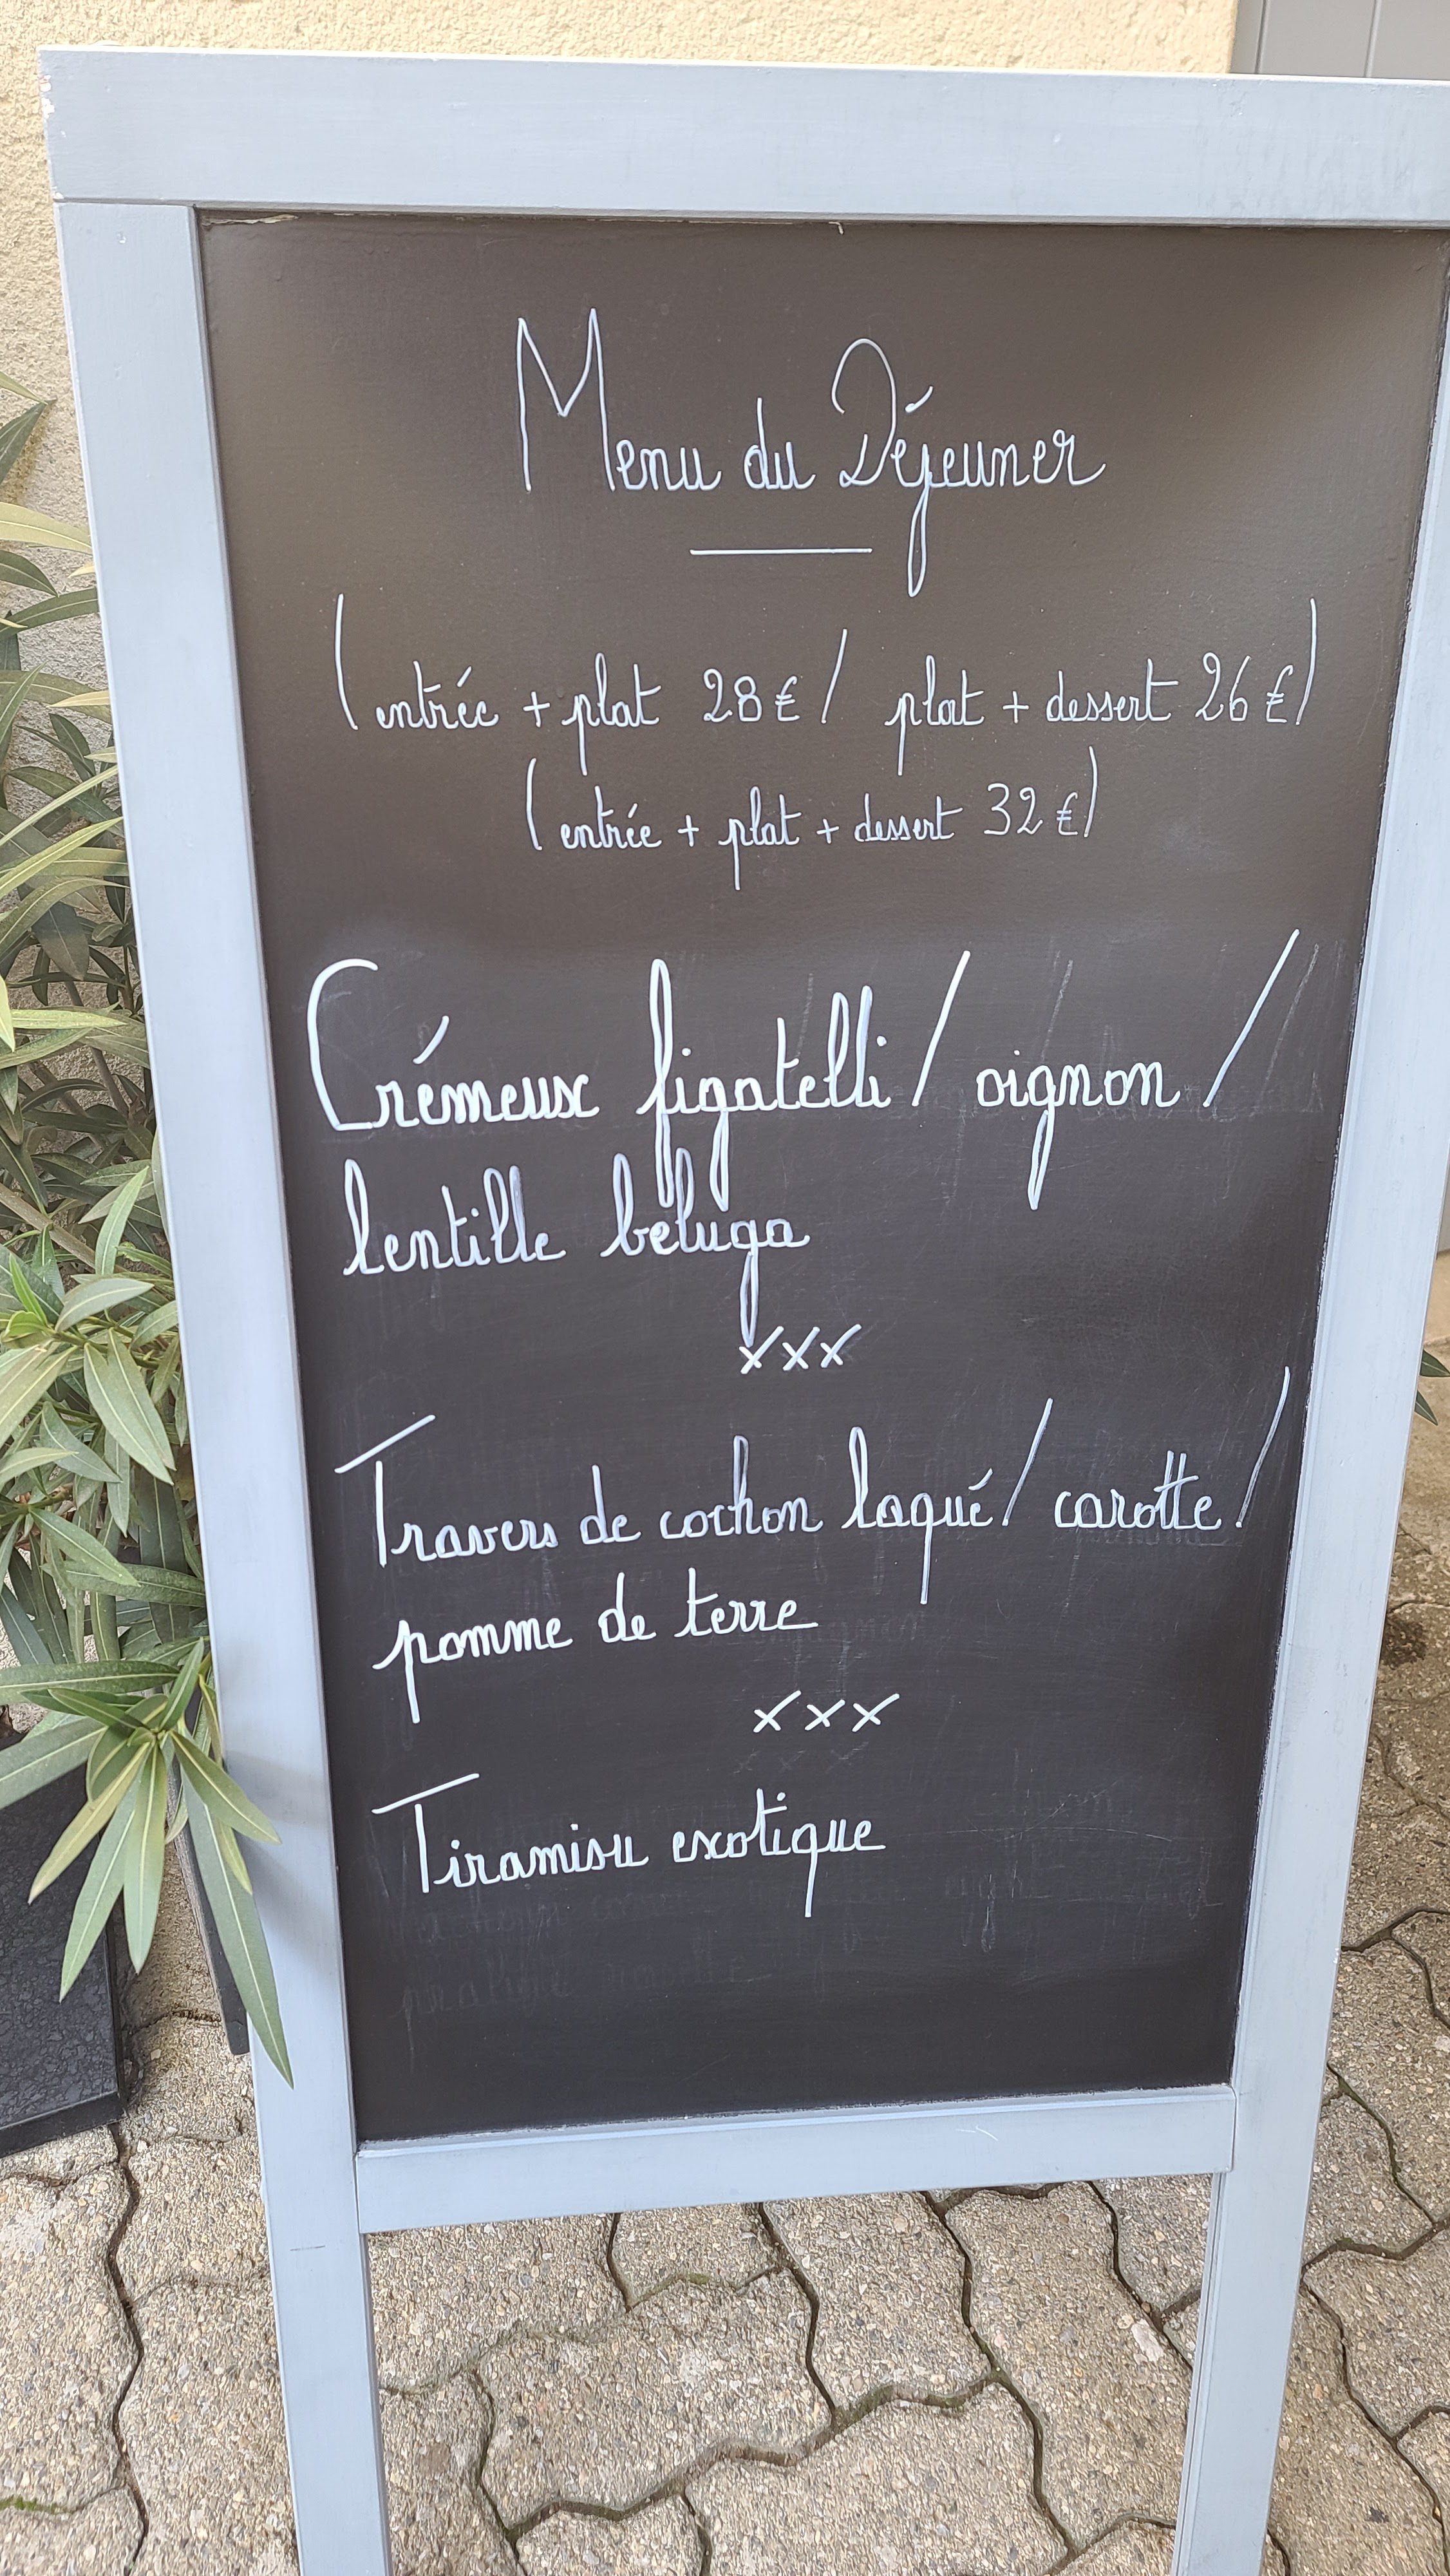 Menu du Déjeuner
(entrée + plat 28€ / plat + dessert 26€)
(entrée + plat + dessert 32€)
Crémeux figatelli / oignon /
lentille beluga
xxx
Travers de cochon laqué / carotte /
pomme de terre
xxx
Tiramisu exotique